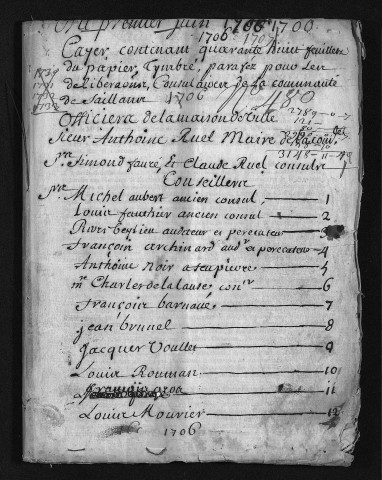 Du premier juin 1706 1700
1706 1707
Cayer contenant quarante huit feuillets
du papier Tymbré, parafez pour les
deliberaons Consulaires de la communauté
de Saillans 1706
Officiers de la maison de Ville
Sieur Anthoine Ruel Maire
Sr Simond faure, & Claude Ruel consuls
Conseillers
Michel aubert ancien consul, 1
Louis fauthier ancien consul 2
auditeur et perecateur 3
françois archinard audr et perecateur 4
Anthoine Noir 5
mr Charles de la lause conr 6
françois barnave 7
jean brunel 8
Jacques Voullet 9
Louis Rouman 10
françois 11
Louis Mourier 12
1706